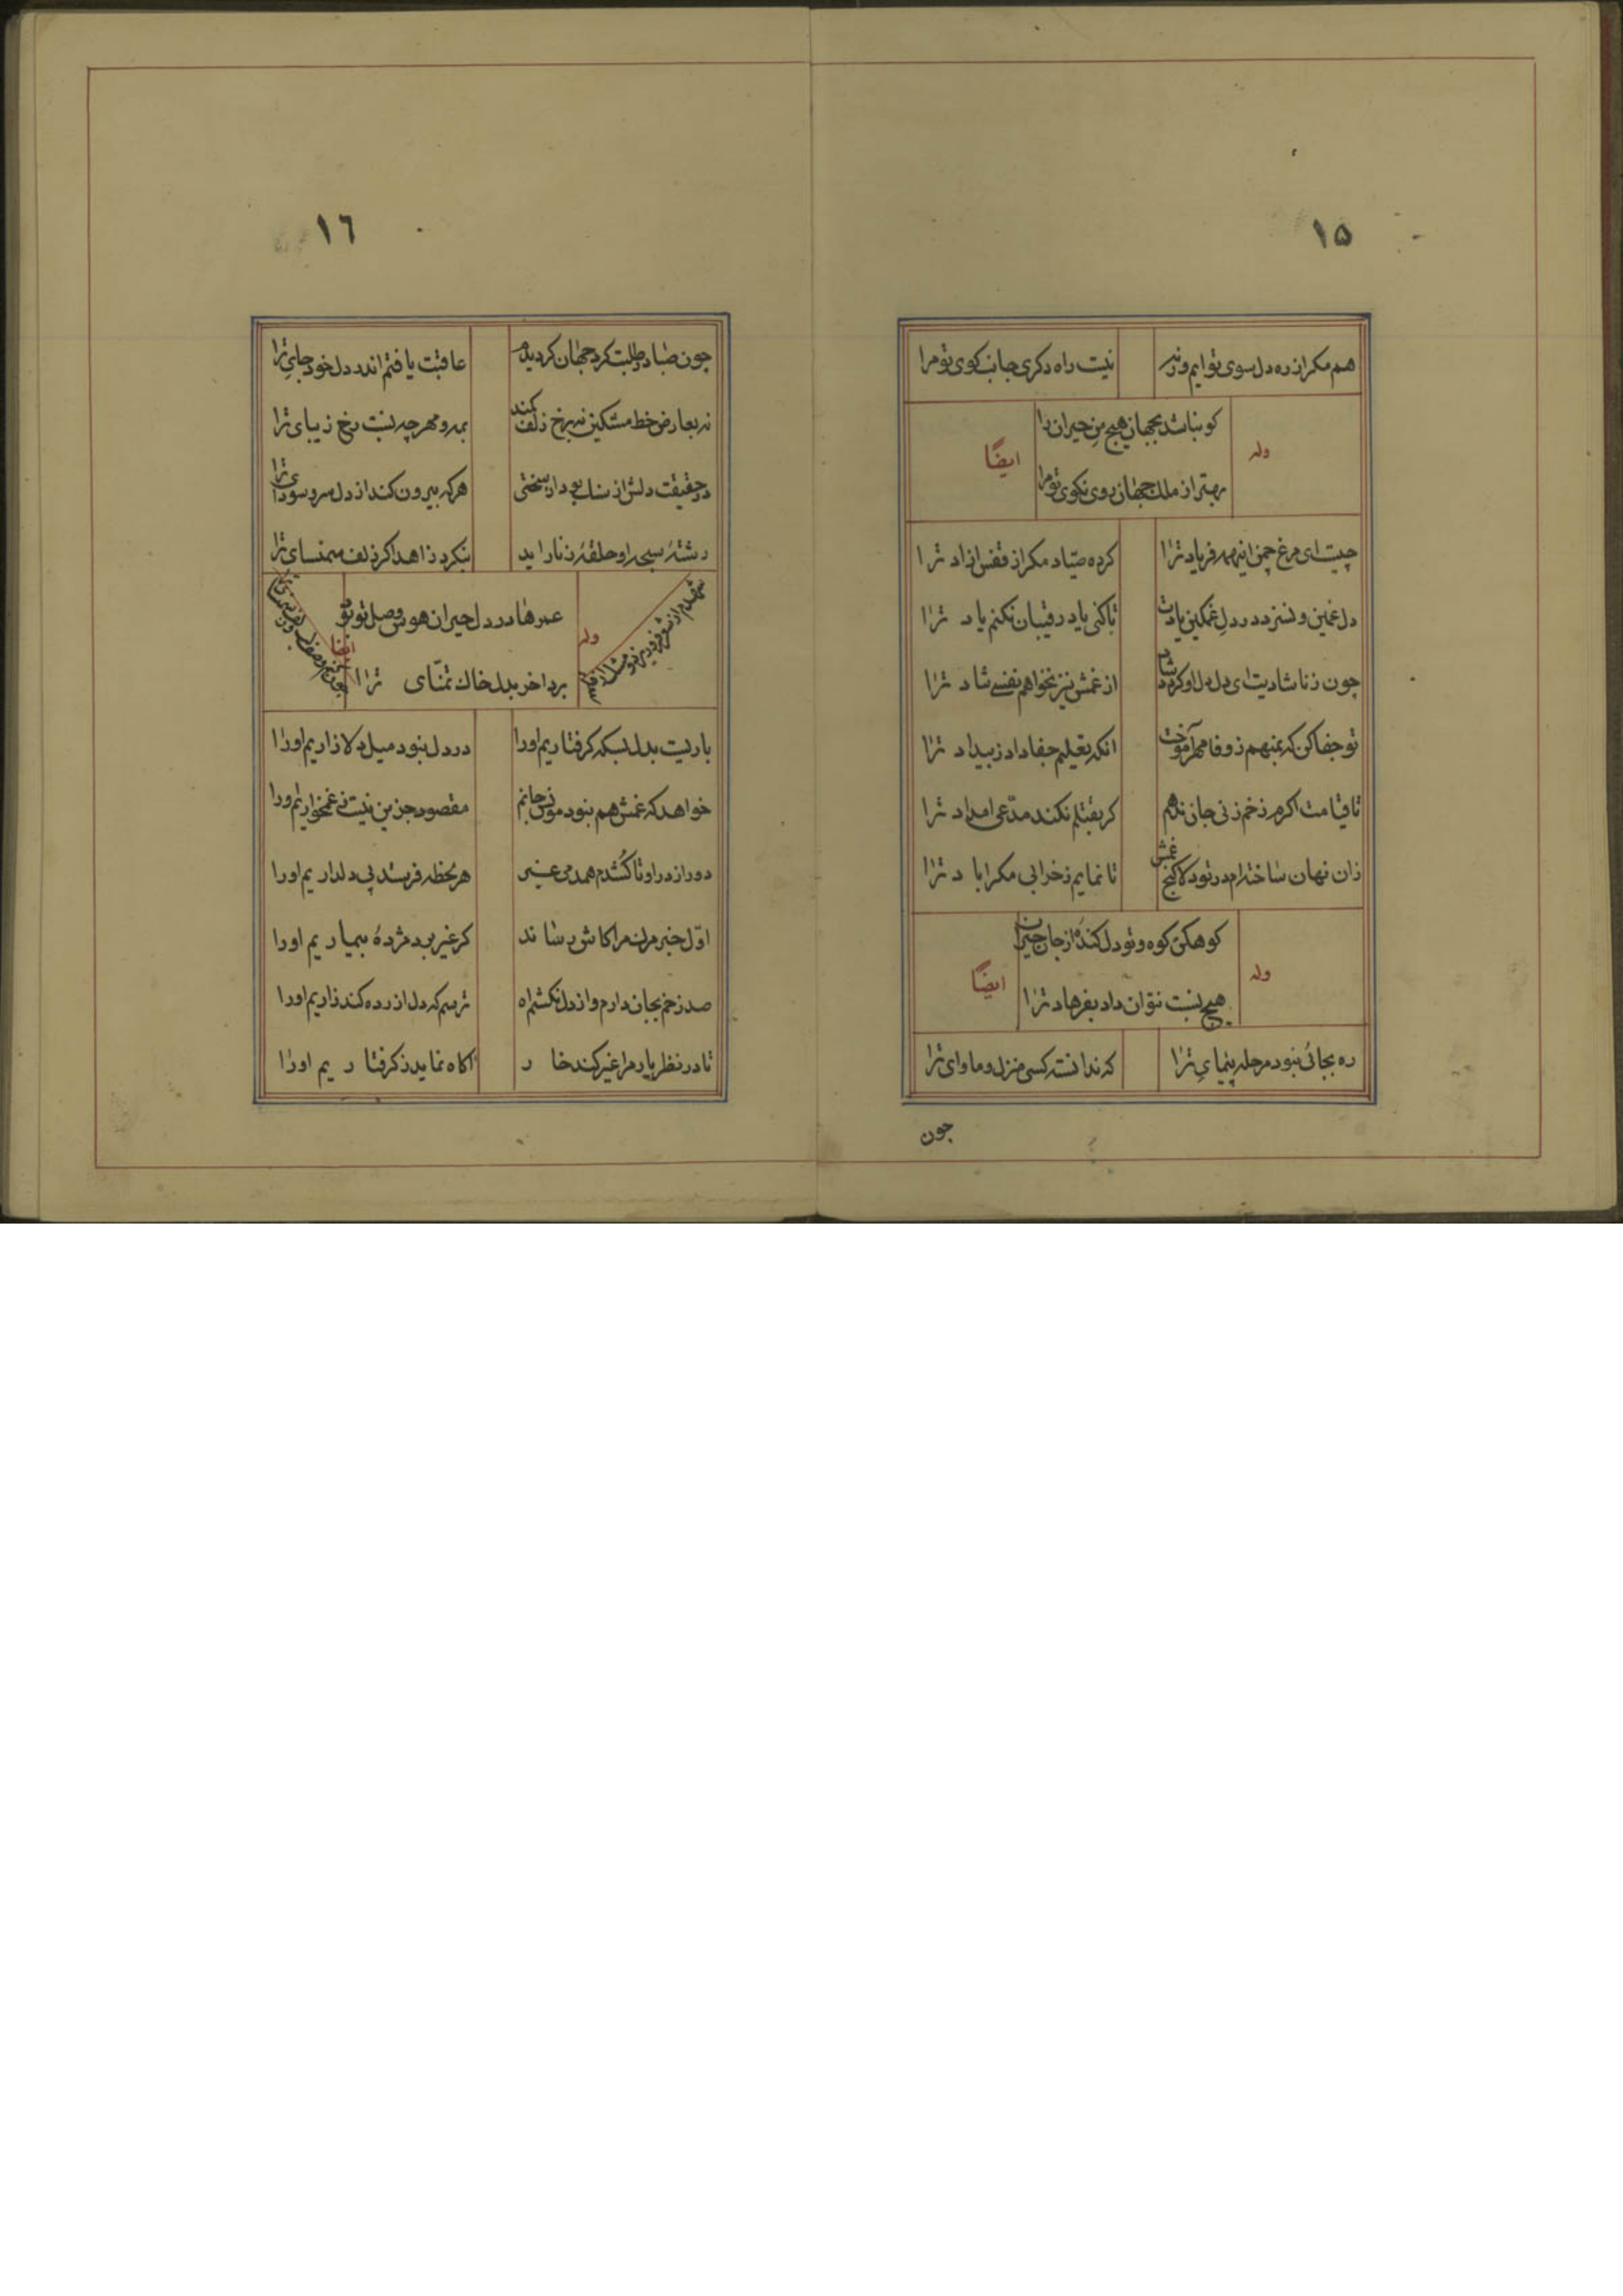 ١٥
هم مکر از ره دل سوی تو ایم ورنه
نیست راه دکری جانب کوی تو مرا
کو نباشد بجهان هیچ من حیران را
وله
ایضًا
بهتر از ملك جهان روی نکوی تو مرا
چیست ای مرغ چمن اینهمه فریاد ترا
کرده صیّاد مکر از قفس ازاد ترا
دل غمین و نسزد در دل غمکین یادت
تا کنی یاد رقیبان نکنم یاد ترا
چون ز ناشادیت ای دل دل او کردد شاد
از غمش نیز نخواهم نفسی شاد ترا
تو جفا کن که بمنهم ز وفا مهر آموخت
انکه تعلیم جفا داد ز بیداد ترا
تا قیامت اکرم زخم زنی جان ندهم
کر بقتلم نکند مدّعی امداد ترا
زان نهان ساخته ام در تو دلا کنج غمش
تا نمایم ز خرابی مکر اباد ترا
کوهکن کوه و تو دل کندهٔ از جان حیران
وله
ایضًا
هیچ نسبت نتوان داد بفرهاد ترا
ره بجائی نبود مرحله پیمایِ ترا
که ندانسته کسی منزل و ماوای ترا
چون
١٦
چون صبا در طلبت کرد جهان کردیدم
عاقبت یافتم اندر دل خود جایِ ترا
نه بعارض خط مشکین نه برخ زلف کمند
بمه و مهر چه نسبت رخ زیبای ترا
در حقیقت دلش از سنك بود دار سختی
هر که بیرون کند از دل سر سودای ترا
رشتهٔ سبحهٔ او حلقهٔ زنار اید
بنکرد زاهد اکر زلف سمنسای ترا
عمرها در دل حیران هوس وصل تو بود
وله
ایضا
برد اخر بدل خاك تمنّای ترا
یاریست بدل بسکه کرفتاریم او را
در دل نبود میل دلازاریم او را
خواهد که غمش هم نبود مونس جانم
مقصود جز من نیست ز غمخواریم او را
دور از در او تا کُشدم همدمی غیر
هر لحظه فرستد پی دلداریم او را
اوّل خبر مرك مرا کاش رساند
کر غیر برد مژدهٔ بیماریم او را
صد زخم بجان دارم و از دل نکشم اه
ترسم که دل ازرده کند زاریم او را
تا در نظر یار مرا غیر کند خار
اکاه نماید ز کرفتاریم او را